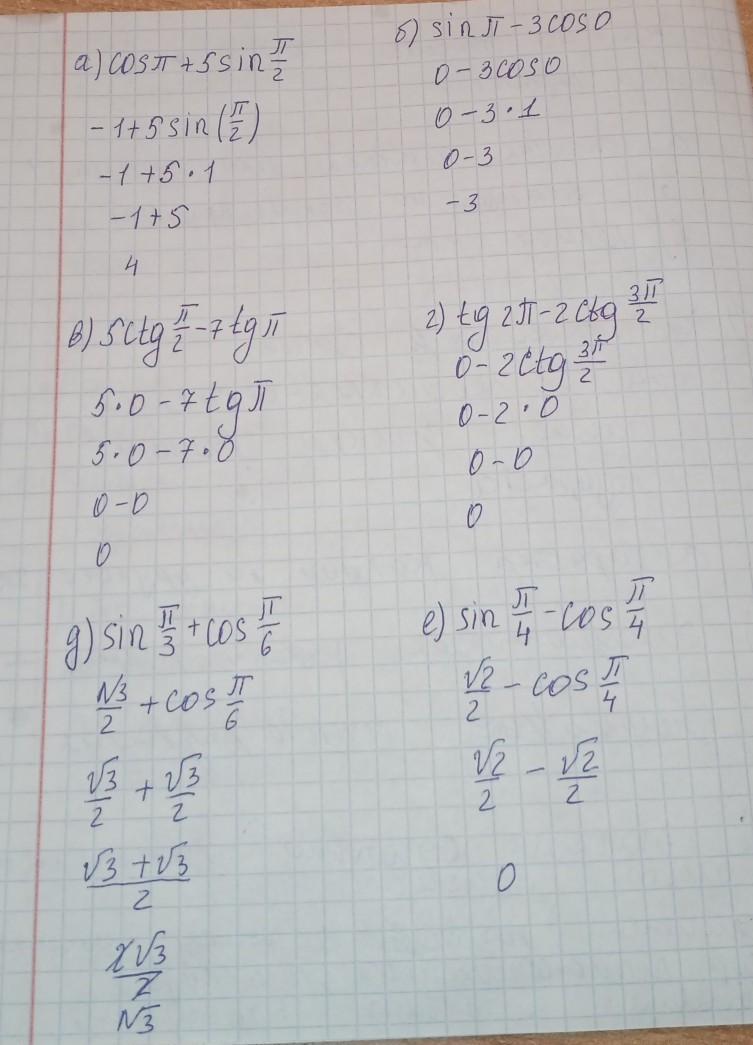 а) cosπ + 5sin π/2
-1 + 5sin (π/2)
-1 + 5 · 1
-1 + 5
4
б) sin π - 3cos0
0 - 3cos0
0 - 3 · 1
0 - 3
-3
в) 5ctg π/2 - 7tg π
5 · 0 - 7tg π
5 · 0 - 7 · 0
0 - 0
0
г) tg 2π - 2ctg 3π/2
0 - 2ctg 3π/2
0 - 2 · 0
0 - 0
0
д) sin π/3 + cos π/6
√3/2 + cos π/6
√3/2 + √3/2
(√3 + √3)/2
2√3/2
√3
е) sin π/4 - cos π/4
√2/2 - cos π/4
√2/2 - √2/2
0